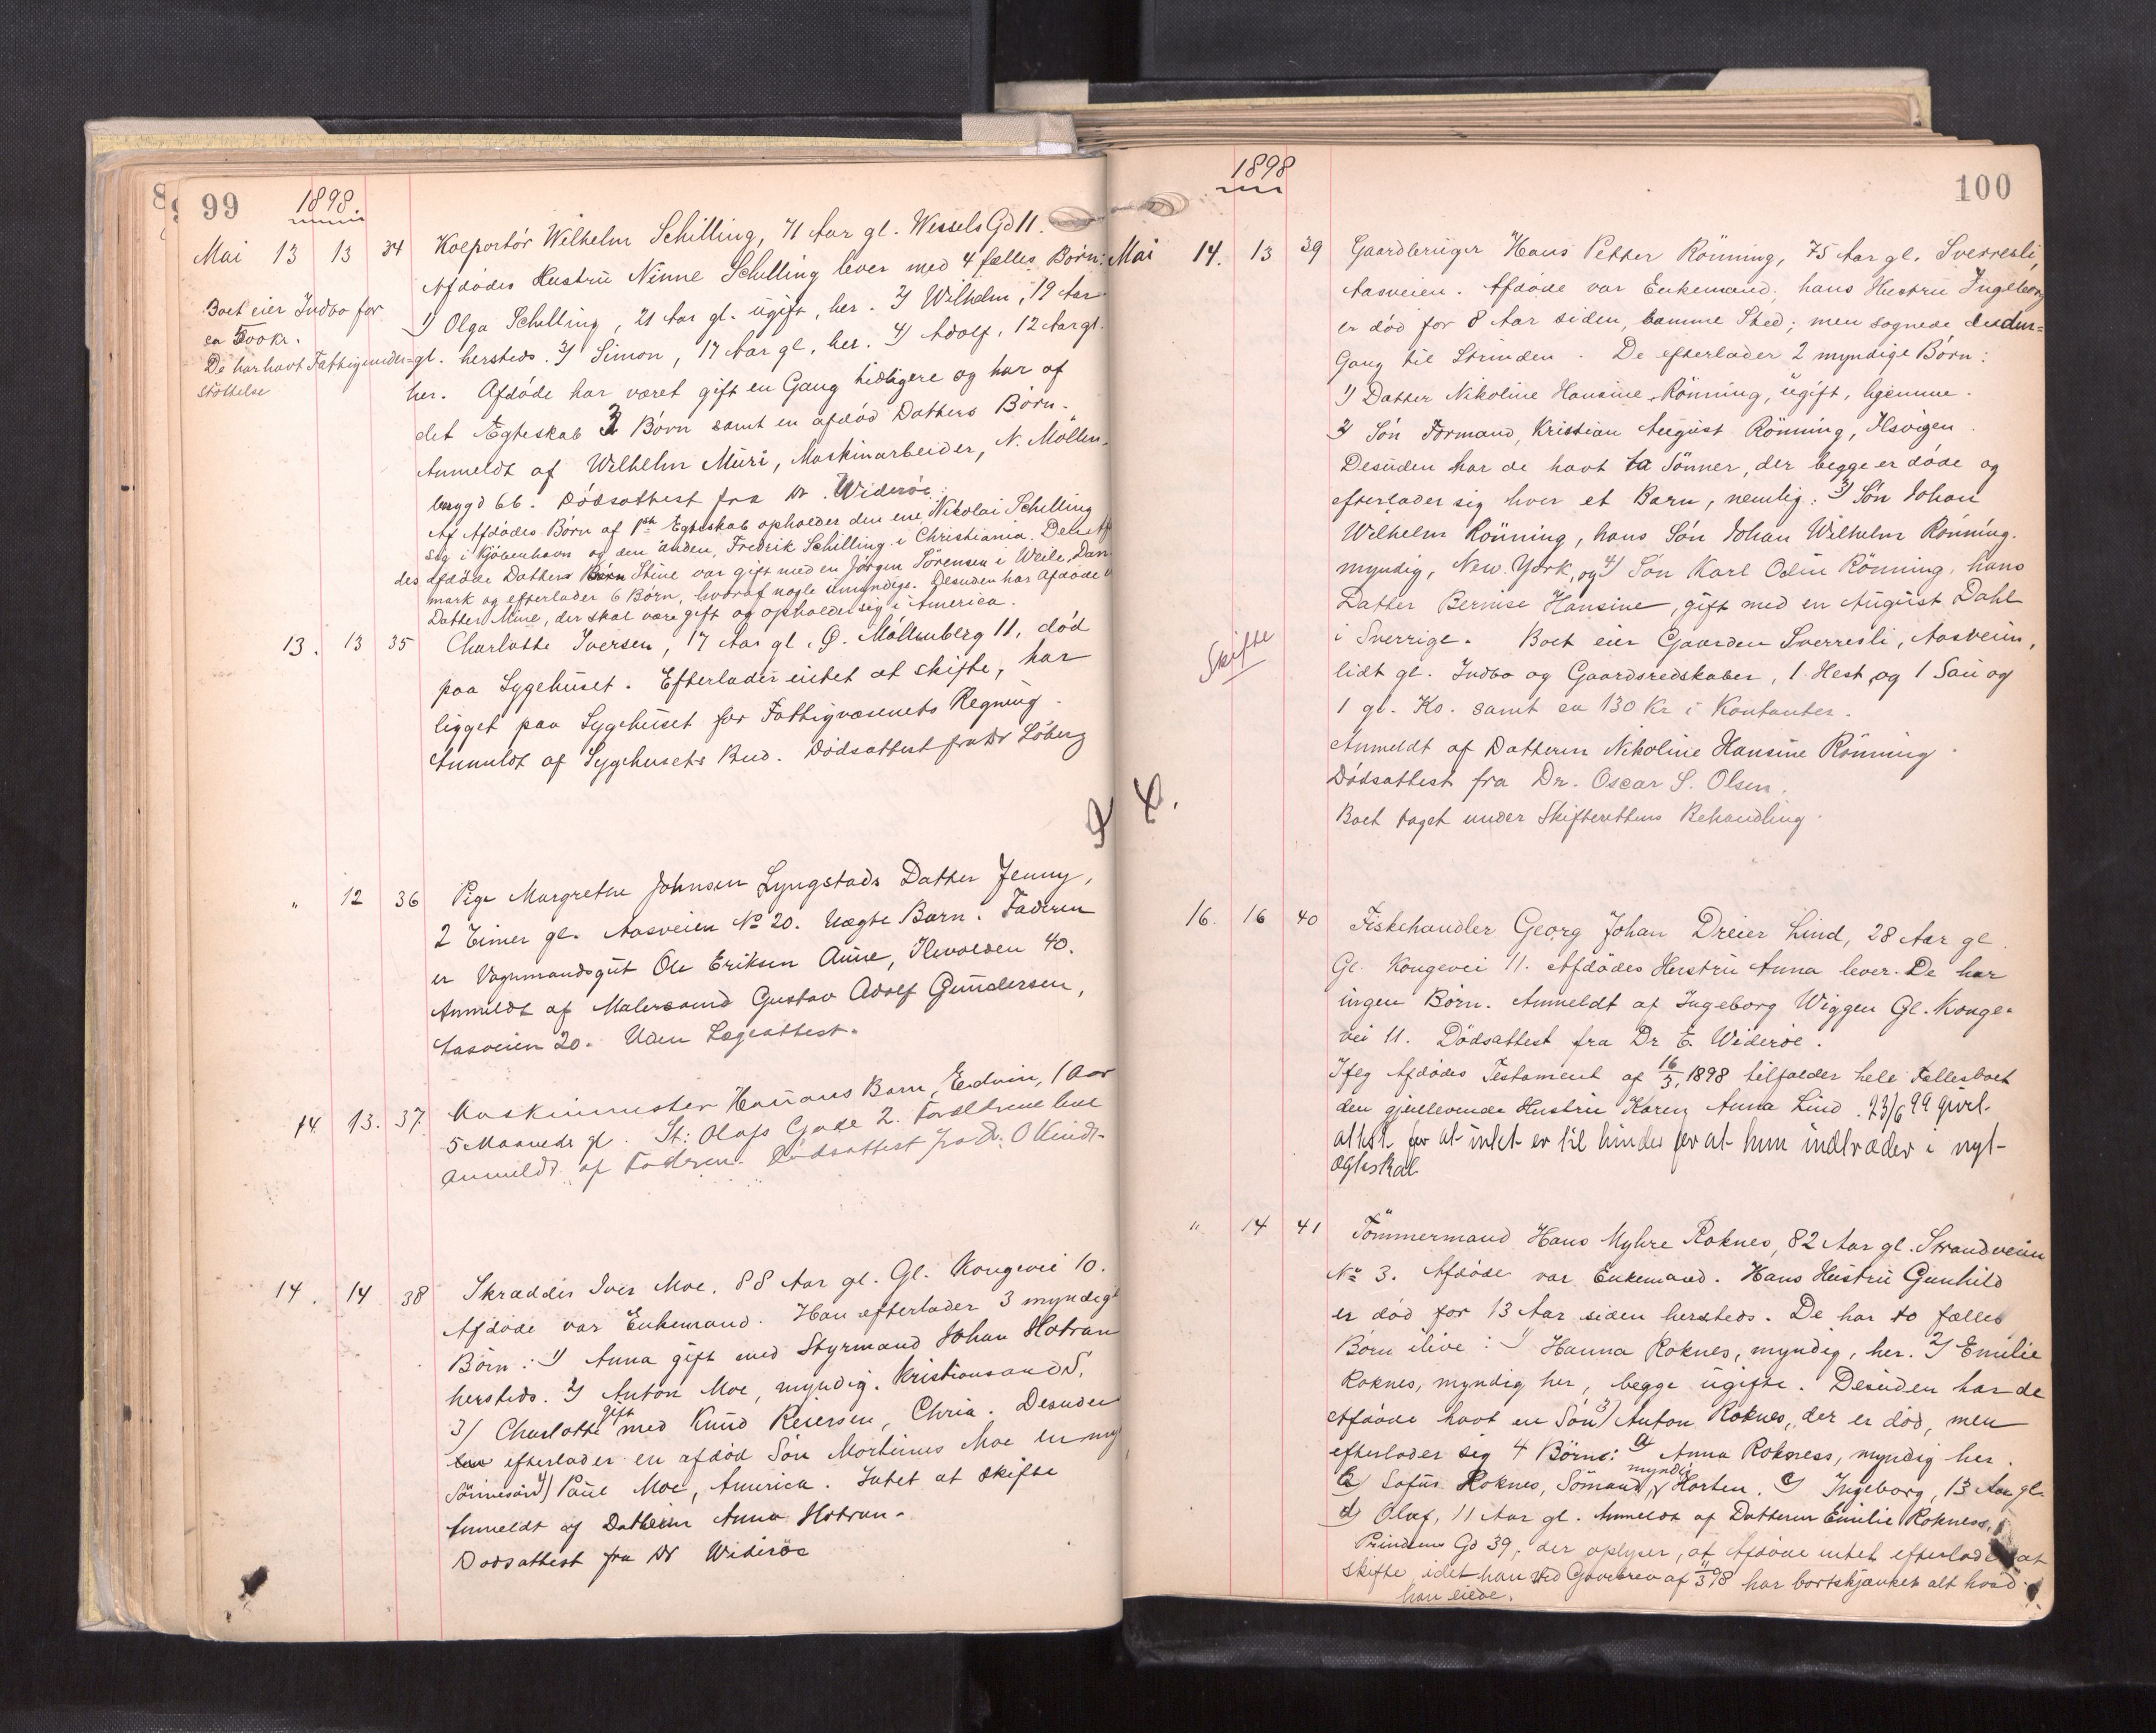 99
1898.
Mai 13 13 34 Kolportör Wilhelm Schilling, 71 Aar gl. Wessels Gd 11.
Afdödes Hustru Ninne Schilling lever med 4 fælles Börn:
1) Olga Schilling, 21 Aar gl. ugift, her. 2) Wilhelm, 19 Aar
gl. hersteds. 3) Simon, 17 Aar gl, her. 4) Adolf, 12 Aar gl.
her. Afdöde har været gift en Gang tidligere og har af
det Ægteskab 3 Börn samt en afdöd Datters Börn.
Anmeldt af Wilhelm Muri, Maskinarbeider, N. Möllen-
berggd 66. Dödsattest fra Dr. Wideröe.
Af Afdödes Börn af 1ste Egteskab opholder den ene, Nikolai Schilling
sig i Kjöbenhavn og den anden, Fredrik Schilling i Christiania. Den Af-
des afdöde Datter Börn Stine var gift med en Jörgen Sörensen i Weile, Dan-
mark og efterlader 6 Börn, hvoraf nogle umyndige. Desuden har Afdöde
Datter Mine, der skal være gift og opholder sig i America.
Boet eier Indbo for
ca 500 kr.
De har havt Fattigunder-
stöttelse
13. 13 35 Charlotte Iversen, 17 Aar gl, Ö. Möllenberg 11, död
paa Sygehuset. Efterlader intet at skifte, har
ligget paa Sygehuset for Fattigvæsenets Regning.
Anmeldt af Sygehusets Bud. Dödsattest fra Dr Löberg
" 12 36 Pige Margrethe Johnsen Lyngstads Datter Jenny,
2 Timer gl. Aasveien No 20. Uægte Barn. Faderen
er Vognmandsgut Ole Eriksen Aune, Ilevolden 40.
Anmeldt af Malersvend Gustav Adolf Gundersen,
Aasveien 20. Uden Lægeattest.
14. 13. 37. Maskinmester Hauans Barn, Edvin, 1 Aar
5 Maaneder gl. St: Olafs Gade 2. Forældrene leve
Anmeldt af Faderen. Dödsattest fra Dr. O Kindt-
14. 14 38 Skrædder Iver Moe. 88 Aar gl. Gl. Kongevei 10.
Afdöde var Enkemand. Han efterlader 3 myndige
Börn: 1) Anna gift med Styrmand Johan Hotran
hersteds. 2) Anton Moe, myndig. Kristiansand S.
3) Charlotte gift med Knud Reiersen, Chria. Desuden
efterlader en afdöd Sön Mortinus Moe en my
Sönnesön 4) Paul Moe, America. Intet at skifte
Anmeldt af Datteren Anna Hotran.
Dödsattest fra Dr Wideröe
1898
100
Mai 14. 13 39 Gaardbruger Hans Petter Rönning, 75 Aar gl. Sverresli,
Aasveien. Afdöde var Enkemand; hans Hustru Ingeborg
er död for 8 Aar siden, samme Sted; men sognede dendn=
Gang til Strinden. De efterlader 2 myndige Börn:
1) Datter Nikoline Hansine Rönning, ugift, hjemme.
2) Sön Formand, Kristian August Rönning, Ilsvigen.
Desuden har de havt to Sönner, der begge er döde og
efterlader sig hver et Barn, nemlig: 3) Sön Johan
Wilhelm Rönning, hans Sön Johan Wilhelm Rönning.
myndig, New. York, og 4) Sön Karl Odin Rönning, hans
Datter Bernise Hansine, gift med en August Dahl
i Sverrige. Boet eier Gaarden Sverresli, Aasveien,
lidt gl. Indbo og Gaardsredskaber, 1 Hest og 1 Sau og
1 gl. Ko. samt ca 130 Kr i Kontanter.
Anmeldt af Datteren Nikoline Hansine Rönning.
Dödsattest fra Dr. Oscar S. Olsen.
Boet taget under Skifterettens Behandling.
Skifte
16. 16 40 Fiskehandler Georg Johan Dreier Lind, 28 Aar gl.
Gl. Kongevei 11. Afdödes Hustru Anna lever. De har
ingen Börn. Anmeldt af Ingeborg Wiggen Gl. Konge-
vei 11. Dödsattest fra Dr E. Wideröe.
Iflg Afdödes Testament af 16/3, 1898 tilfalder hele Fællesboet
den gjenlevende Hustru Karen Anna Lind. 23/6 99 givet
attest for at intet er til hinder for at hun indtræder i nyt
ægteskab
" 14 41 Tömmermand Hans Myhre Roknes, 82 Aar gl. Strandveien
No 3. Afdöde var Enkemand. Hans Hustru Gunhild
er död for 13 Aar siden hersteds. De har to fælles
Börn ilive: 1) Hanna Roknes, myndig, her. 2) Emilie
Roknes, myndig her, begge ugifte. Desuden har de
Afdöde havt en Sön 3) Anton Roknes, der er död, men
efterlader sig 4 Börn: a) Anna Rokness, myndig her.
b) Sofus Roknes, Sömand, myndig Horten. c) Ingeborg, 13 Aar gl.
d) Olaf, 11 Aar gl. Anmeldt af Datteren Emilie Rokness,
Prindsens Gd 39, der oplyser, at Afdöde intet efterlader at
skifte, idet han ved Gavebrev af 11/3 98 har bortskjænket alt hvad
han eiede.